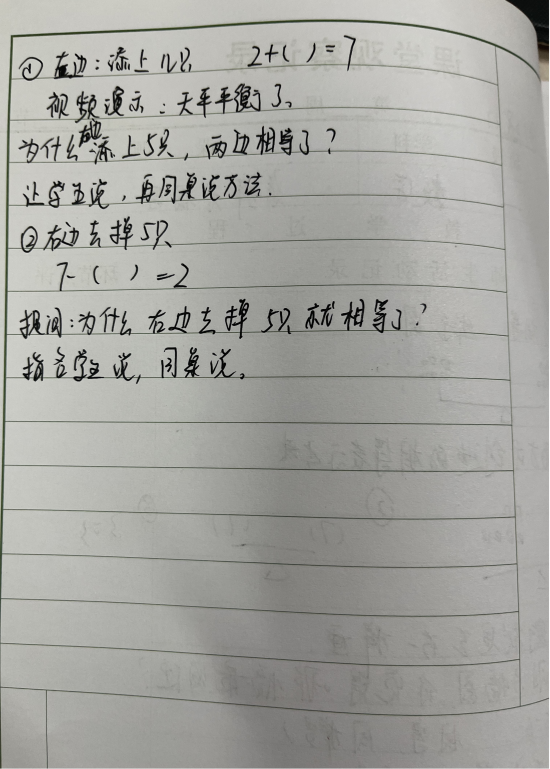 ① 左边：添上几只 2+( )=7
视频演示：天平平衡了。
为什么左边添上5只，两边相等了？
让学生说，再同桌说方法.
② 右边去掉5只
7-( )=2
提问：为什么右边去掉5只就相等了？
指名学生说，同桌说。